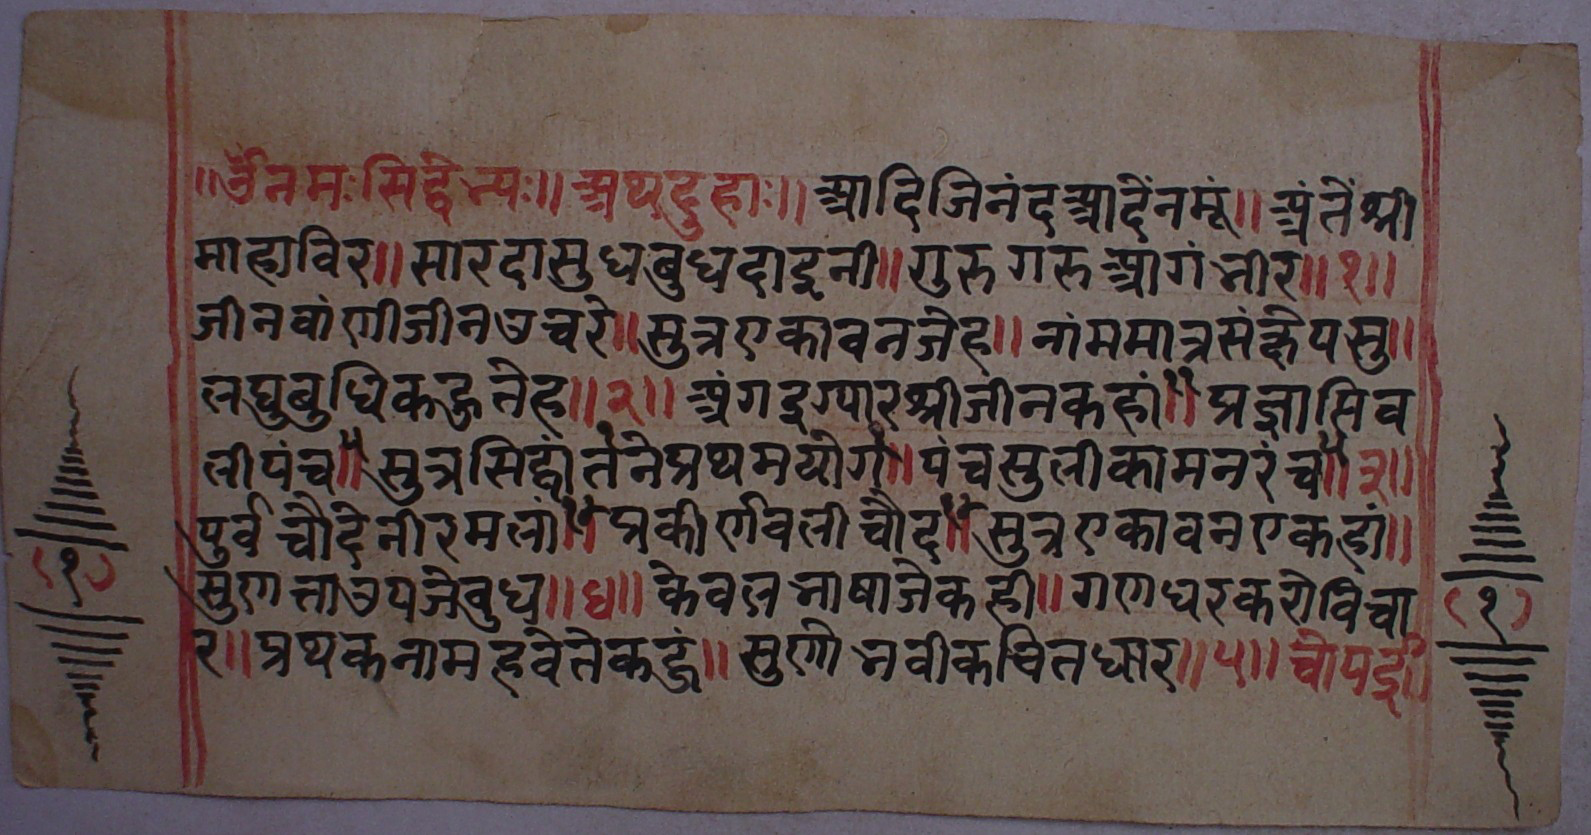 ॥ॐ नमः सिद्धेभ्यः॥ अथ दुहाः॥ आदि जिनंद आदें नमूं॥ अंतें श्री
माहाविर॥ सारदा सुध बुध दाइनी॥ गुरु गरु आ गंभीर॥१॥
जीनवांणी जीन उचरे॥ सुत्र एकावन जेह॥ नांम मात्र संक्षेप सु॥
लघु बुधि कहु तेह॥२॥ अंग इग्यार श्री जीन कहां॥ प्रज्ञासि व
ली पंच॥ सुत्र सिद्धां तंने प्रथम योग॥ पंच सुलीका मन रंच॥३॥
पुर्व चौदे नीरमलां॥ प्रकीर्ण वली चौद॥ सुत्र एकावन ए कहां॥
सुणता उपजे बुध॥४॥ केवल भाषा जे कही॥ गणधर करो विचा
र॥ प्रथक नाम हवे ते कहुं॥ सुणो भवीक चित धार॥५॥ चोपई॥
(१)
(१)